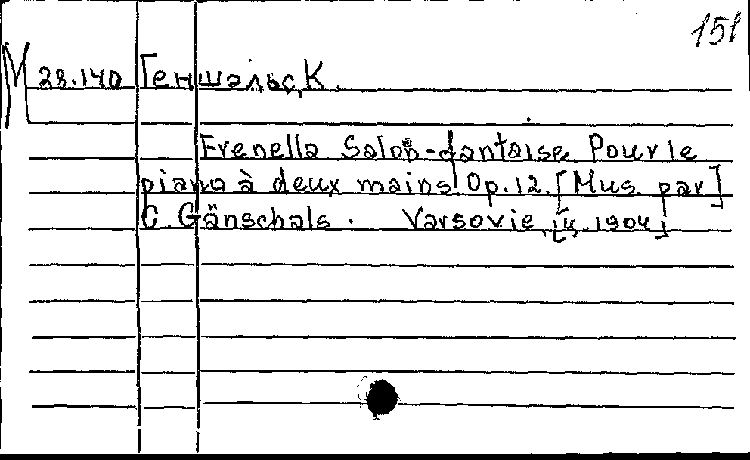 151
М 28.140 Геншальс, К.
Frenella Salon-fantaise Pour le
piano à deux mains. Op. 12. [Mus. par]
C. Gänschals. Varsovie, [ц. 1904]